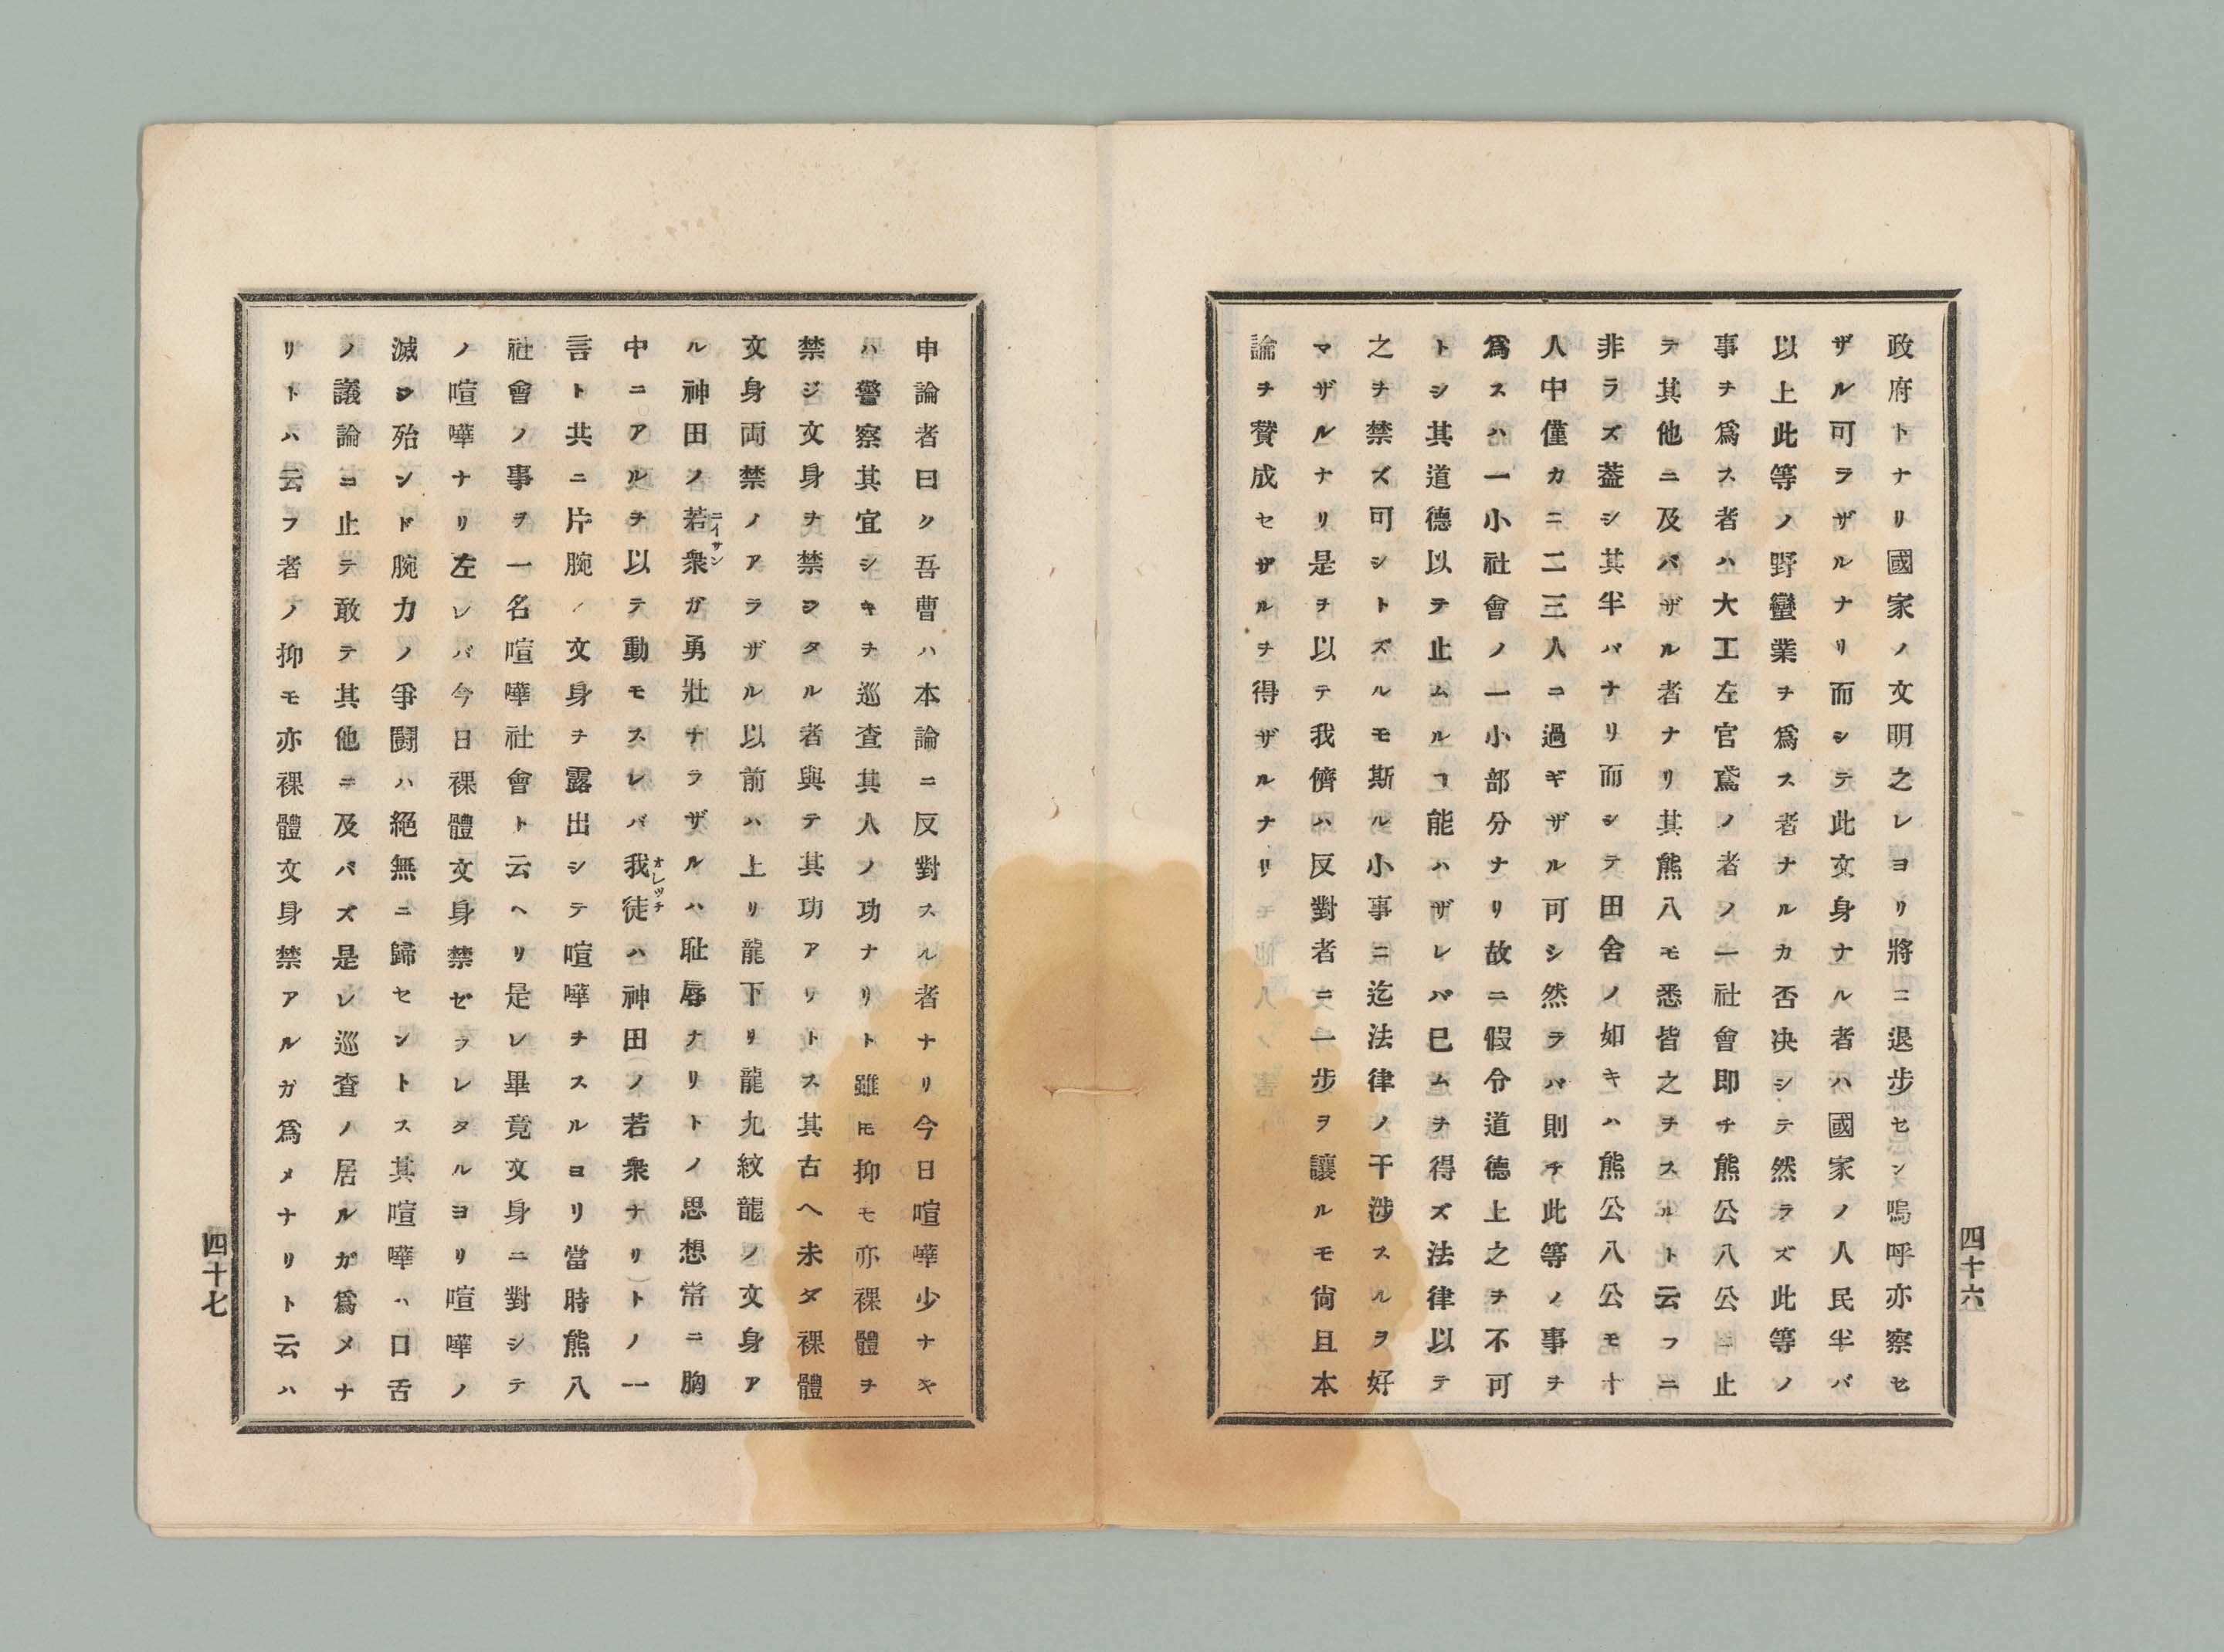 政府トナリ國家ノ文明之レヨリ將ニ退步セシ嗚呼亦察セ
ザル可ラザルナリ而シテ此文身ナル者ハ國家ノ人民半バ
以上此等ノ野蠻業チ爲ス者ナルカ否决シテ然ラズ此等ノ
事チ爲ス者ハ大工左官鳶ノ者ノ一社會即チ熊公八公ニ止
テ其他ニ及バザル者ナリ其熊八モ悉皆之チスルト云フニ
非ラズ蓋シ其半バナリ而シテ田舍ノ如キハ熊公八公モ十
人中僅カニ二三人ニ過ギザル可シ然ラバ則チ此等ノ事チ
爲スハ一小社會ノ一小部分ナリ故ニ假令道德上之チ不可
トシ其道德以テ止ムルヿ能ハザレバ已ムチ得ズ法律以テ
之チ禁ズ可シトズルモ斯ル小事ニ迄法律ノ干涉スルヲ好
マザルナリ是ヲ以テ我儕ハ反對者ニ一步ヲ讓ルモ尙且本
論チ賛成セザルチ得ザルナリ
四十六
申論者曰ク吾曹ハ本論ニ反對スル者ナリ今日喧嘩少ナキ
ハ警察其宜シキチ巡査其人ノ功ナリト雖𪜈抑モ亦裸體ヲ
禁ジ文身ヲ禁ヲタル者與テ其功アリトス其古ヘ未ダ裸體
文身両禁ノアラザル以前ハ上リ龍下リ龍九紋龍ノ文身ア
ル神田ノ若衆ガ勇壯ナラザルハ耻辱ナリトノ思想常ニ胸
ニイサン
中ニアルチ以テ動モスレバ我徒ハ神田ノ若衆ナリ）トノ一
オレッチ
言ト共ニ片腕ノ文身チ露出シテ喧嘩チスルヨリ當時熊八
社會ノ事ヲ一名喧嘩社會ト云ヘリ是レ畢竟文身ニ對シテ
ノ喧嘩ナリ左レバ今日裸體文身禁ゼラレタルヨリ喧嘩ノ
滅ヲ殆ンド腕力ノ爭鬪ハ絕無ニ歸センドス其喧嘩ハ口舌
ノ議論ヨ止テ敢テ其他ニ及バズ是レ巡査ノ居ルガ爲メナ
リトハ云フ者ノ抑モ亦裸體文身禁アルガ爲メナリト云ハ
四十七